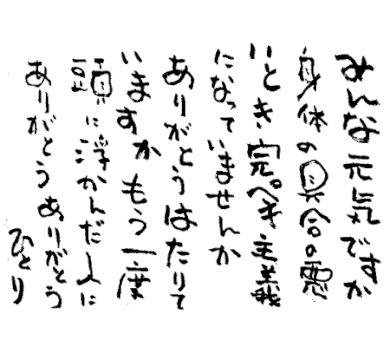 みんな元気ですか
身体の具合の悪
いとき完ペキ主義
になっていませんか
ありがとうはたりて
いますか もう一度
頭に浮かんだ人に
ありがとうありがとう
ひとり